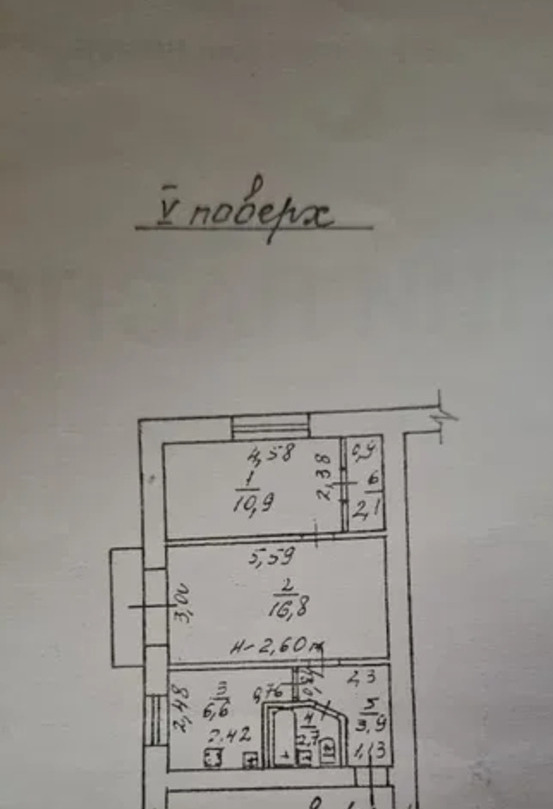 V поверх
4,58
2,38
0,9
1
10,9
6
2,1
5,59
2
16,8
3,00
н-2,60м
2,3
3
6,6
0,76
2,48
4
2,7
5
3,9
2.42
1,13